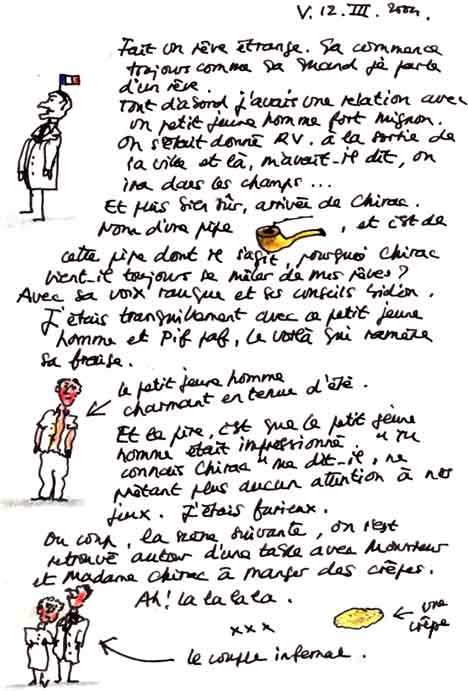 V. 12. III. 2004.
Fait un rêve étrange. Ça commence
toujours comme ça quand je parle
d'un rêve.
Tout d'abord j'avais une relation avec
un petit jeune homme fort mignon.
On s'était donné R.V. à la sortie de
la ville et là, m'avait-il dit, on
ira dans les champs...
Et puis bien sûr, arrivée de Chirac.
Nom d'une pipe , et c'est de
cette pipe dont il s'agit, pourquoi Chirac
vient-il toujours se mêler de mes rêves ?
Avec sa voix rauque et ses conseils bidon.
J'étais tranquillement avec ce petit jeune
homme et Pif paf, le voilà qui ramène
sa fraise.
le petit jeune homme
charmant en tenue d'été.
Et le pire, c'est que le petit jeune
homme était impressionné. "Tu
connais Chirac" me dit-il, ne
prêtant plus aucun attention à nos
jeux. J'étais furieux.
Du coup, la scène suivante, on s'est
retrouvé autour d'une table avec Monsieur
et Madame Chirac à manger des crêpes.
Ah! la la la la.
x x x
une
crêpe
le couple infernal.